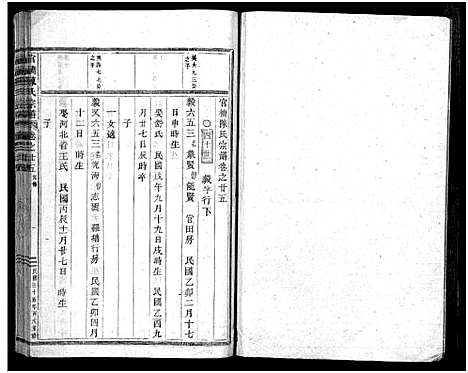 官橋陳氏宗譜卷之廿五
毅字行下
毅六五三 能賢 官田房 民國乙卯二月十七
日申時生
娶舒氏 民國戊午九月十九日戌時生 民國乙酉九
月廿七日辰時卒
一女適
毅又六五三 志 羅塘行房 民國乙卯四月
十二日 時生
娶河北省王氏 民國丙辰十一月廿七日 時生
子
官橋陳氏宗譜 卷之廿五